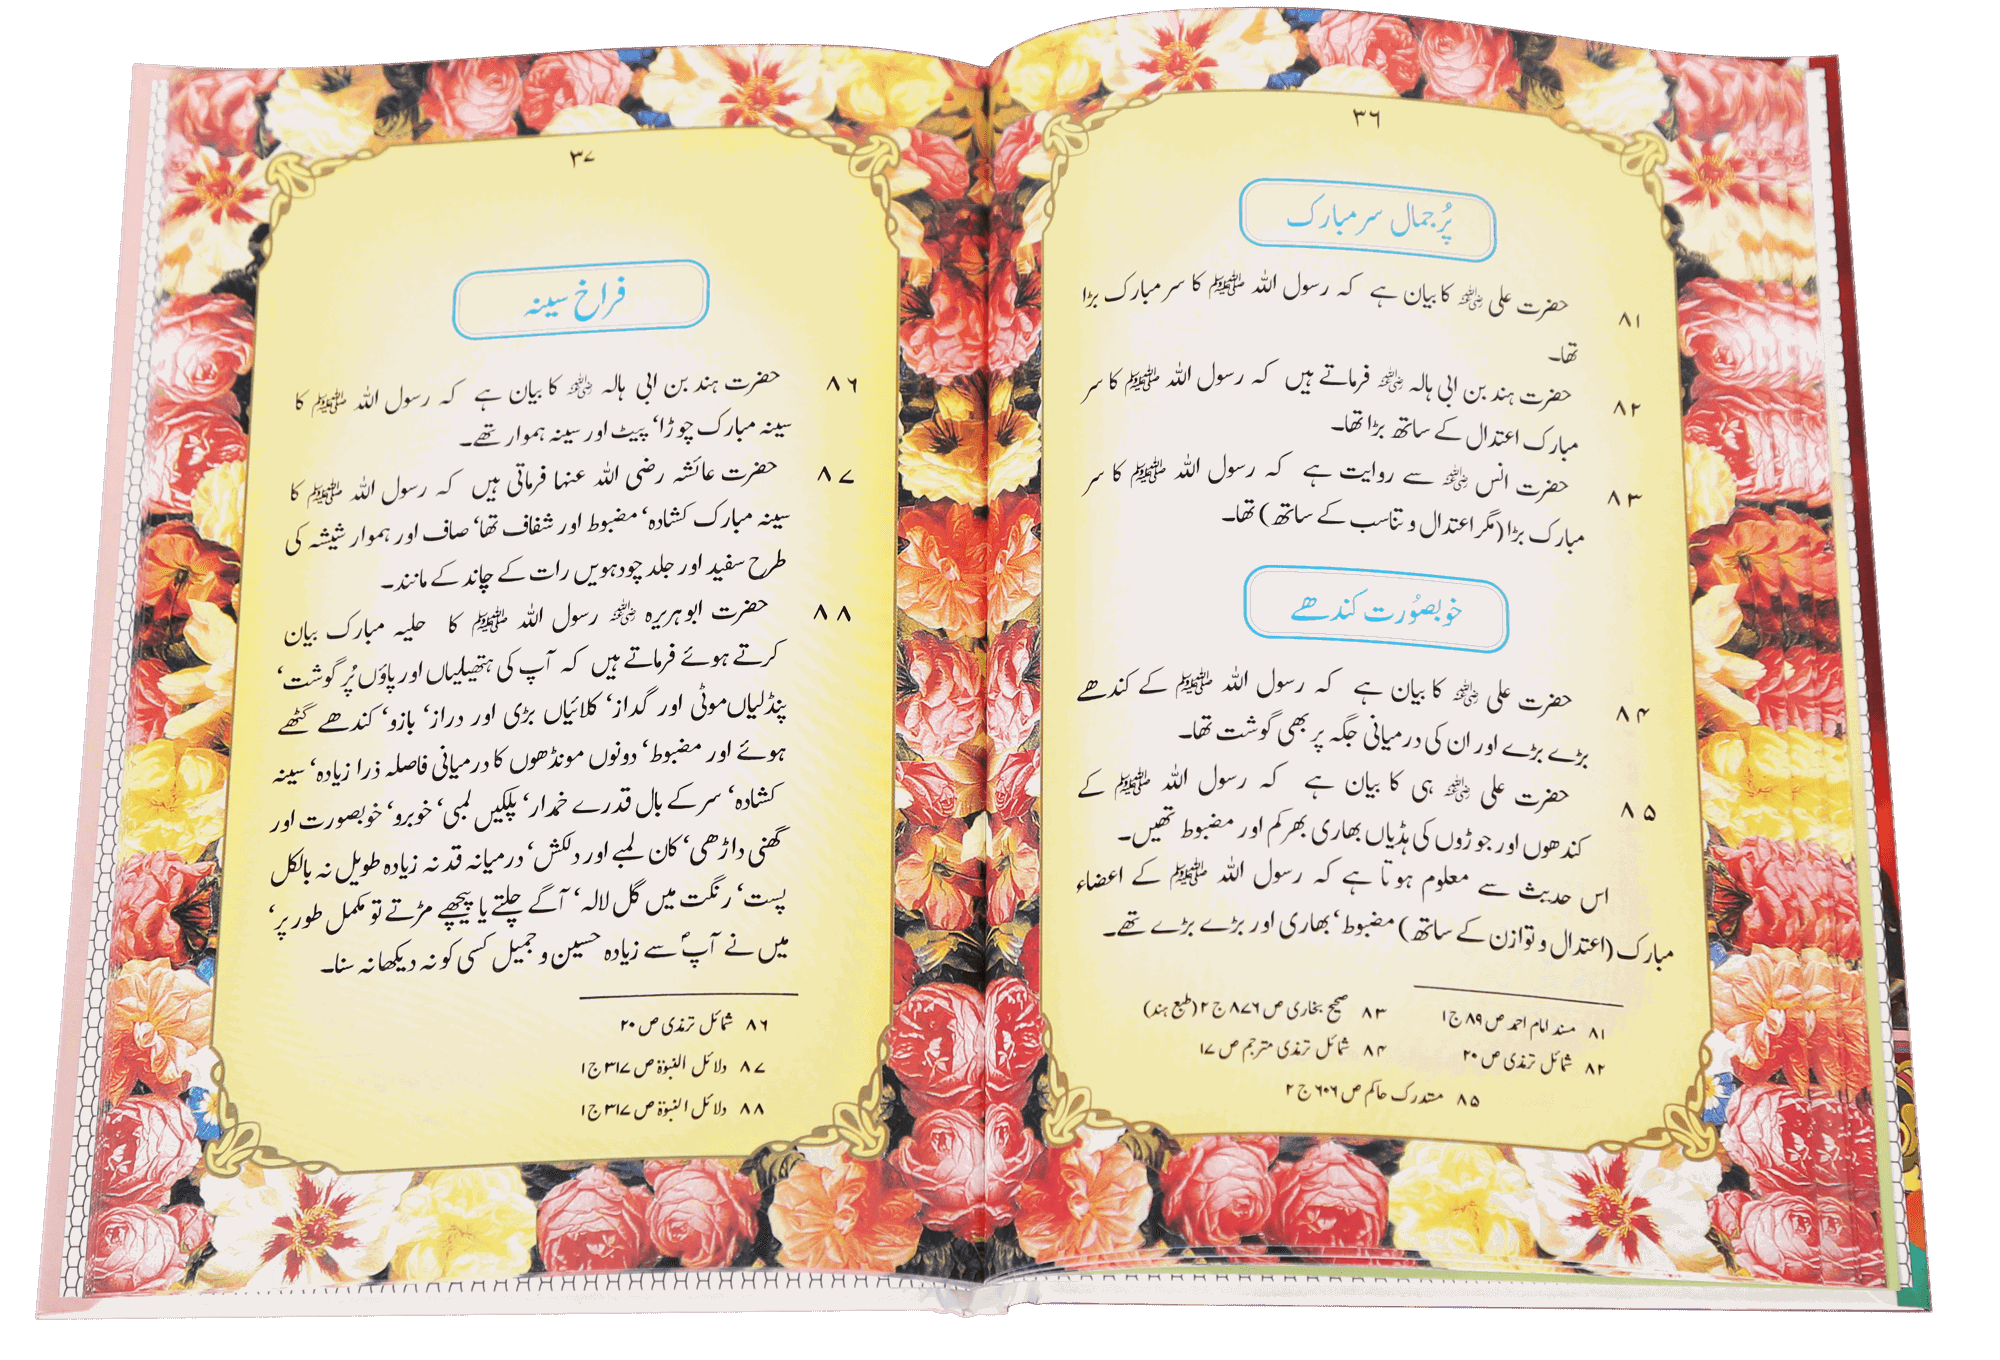 ۳۶
پُر جمال سر مبارک
۸۱ حضرت علی ؓ کا بیان ہے کہ رسول اللہ ﷺ کا سر مبارک بڑا
تھا۔
۸۲ حضرت ہند بن ابی ہالہ ؓ فرماتے ہیں کہ رسول اللہ ﷺ کا سر
مبارک اعتدال کے ساتھ بڑا تھا۔
۸۳ حضرت انس ؓ سے روایت ہے کہ رسول اللہ ﷺ کا سر
مبارک بڑا (مگر اعتدال و تناسب کے ساتھ) تھا۔
خوبصُورت کندھے
۸۴ حضرت علی ؓ کا بیان ہے کہ رسول اللہ ﷺ کے کندھے
بڑے بڑے اور ان کی درمیانی جگہ پر بھی گوشت تھا۔
۸۵ حضرت علی ؓ ہی کا بیان ہے کہ رسول اللہ ﷺ کے
کندھوں اور جوڑوں کی ہڈیاں بھاری بھرکم اور مضبوط تھیں۔
اس حدیث سے معلوم ہوتا ہے کہ رسول اللہ ﷺ کے اعضاء
مبارک (اعتدال و توازن کے ساتھ) مضبوط، بھاری اور بڑے بڑے تھے۔
۸۱ مسند امام احمد ص ۸۹ ج ۱ ۸۳ صحیح بخاری ص ۸۷۶ ج ۲ (طبع ہند)
۸۲ شمائل ترمذی ص ۲۰ ۸۴ شمائل ترمذی مترجم ص ۱۷
۸۵ مستدرک حاکم ص ۶۰۶ ج ۲
۳۷
فراخ سینہ
۸۶ حضرت ہند بن ابی ہالہ ؓ کا بیان ہے کہ رسول اللہ ﷺ کا
سینہ مبارک چوڑا، پیٹ اور سینہ ہموار تھے۔
۸۷ حضرت عائشہ رضی اللہ عنہا فرماتی ہیں کہ رسول اللہ ﷺ کا
سینہ مبارک کشادہ، مضبوط اور شفاف تھا، صاف اور ہموار شیشہ کی
طرح سفید اور جلد چودہویں رات کے چاند کے مانند۔
۸۸ حضرت ابوہریرہ ؓ رسول اللہ ﷺ کا حلیہ مبارک بیان
کرتے ہوئے فرماتے ہیں کہ آپ کی ہتھیلیاں اور پاؤں پُر گوشت،
پنڈلیاں موٹی اور گداز، کلائیاں بڑی اور دراز، بازو، کندھے گٹھے
ہوئے اور مضبوط، دونوں مونڈھوں کا درمیانی فاصلہ ذرا زیادہ، سینہ
کشادہ، سر کے بال قدرے خمدار، پلکیں لمبی، خوبرو، خوبصورت اور
گھنی داڑھی، کان لمبے اور دلکش، درمیانہ قد نہ زیادہ طویل نہ بالکل
پست، رنگت میں گل لالہ، آگے چلتے یا پیچھے مڑتے تو مکمل طور پر،
میں نے آپؐ سے زیادہ حسین و جمیل کسی کو نہ دیکھا نہ سنا۔
۸۶ شمائل ترمذی ص ۲۰
۸۷ دلائل النبوة ص ۳۱۷ ج ۱
۸۸ دلائل النبوة ص ۳۱۷ ج ۱